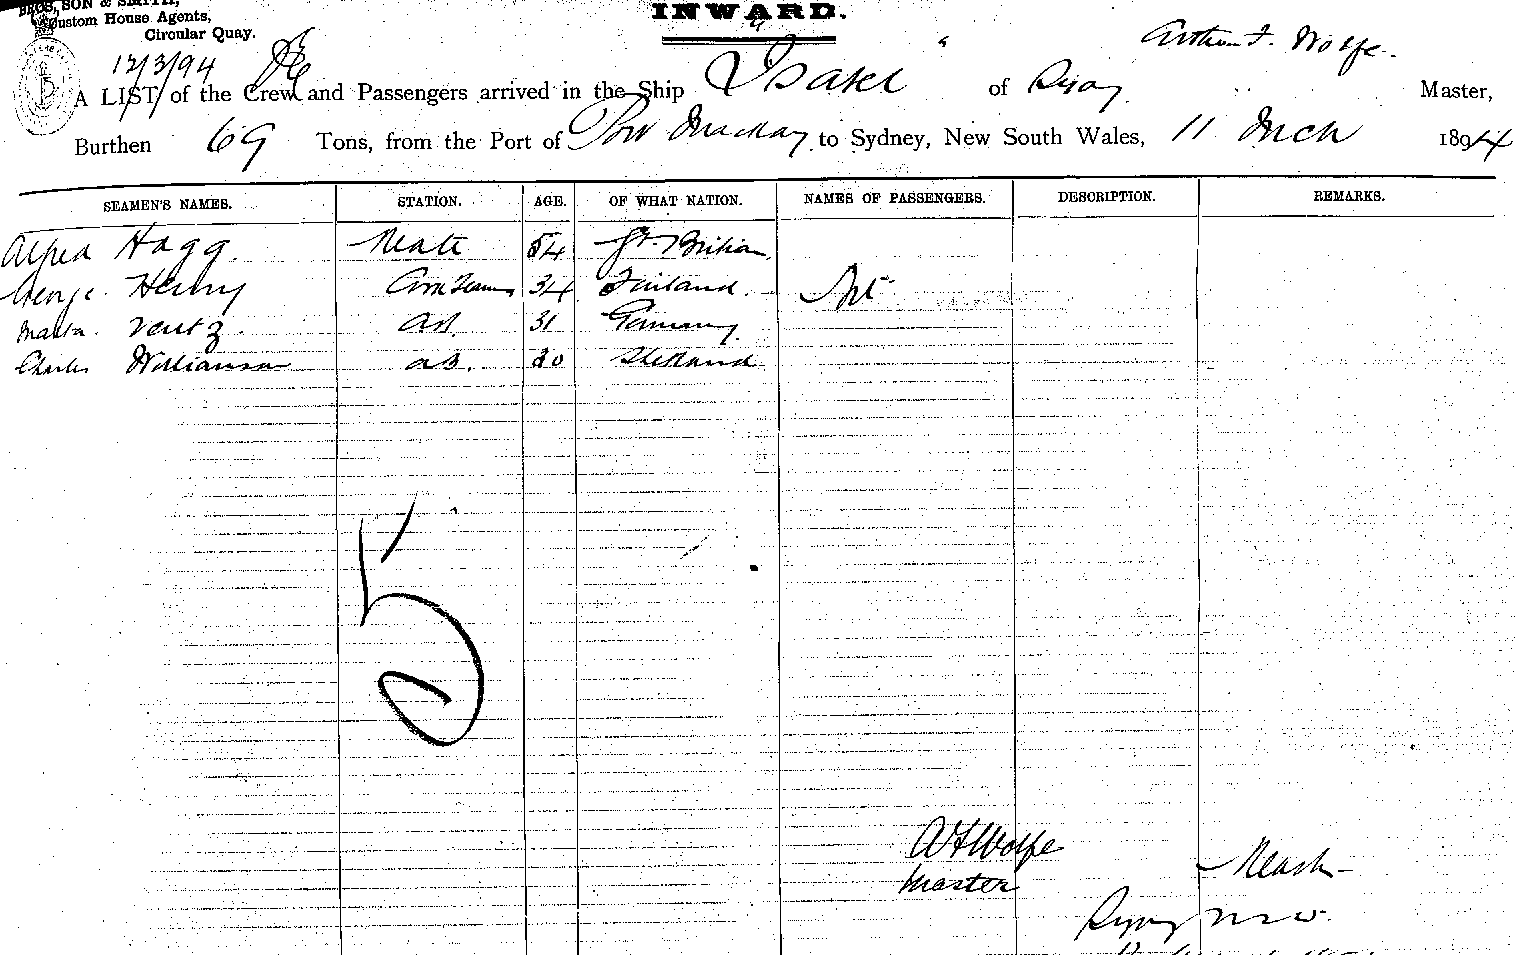 BROS, SON & SMITH,
Custom House Agents,
Circular Quay.
INWARD.
12/3/94
Arthur F. Wolfe.
A LIST of the Crew and Passengers arrived in the Ship "Isabel" of Master,
Burthen 69 Tons, from the Port of Port Mackay to Sydney, New South Wales, 11 Mch 1894
SEAMEN'S NAMES. STATION. AGE. OF WHAT NATION. NAMES OF PASSENGERS. DESCRIPTION. REMARKS.
Alfred Hagg. Mate 54 Gt. Britian
George Henry 34 Finland. Nil
Ventz. 31 Germany
Charles Williamson AB. 20 Shetland
5
A F Wolfe
Master